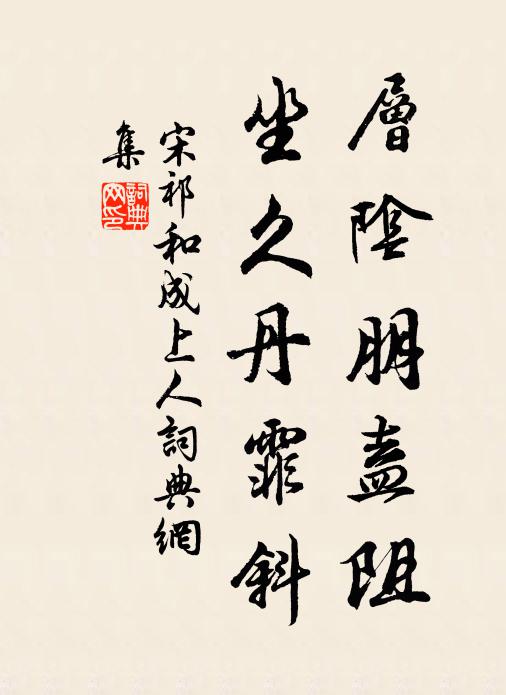 層陰朋盍阻
坐久丹霏斜
宋祁和成上人詞典網
集
詞典
网印